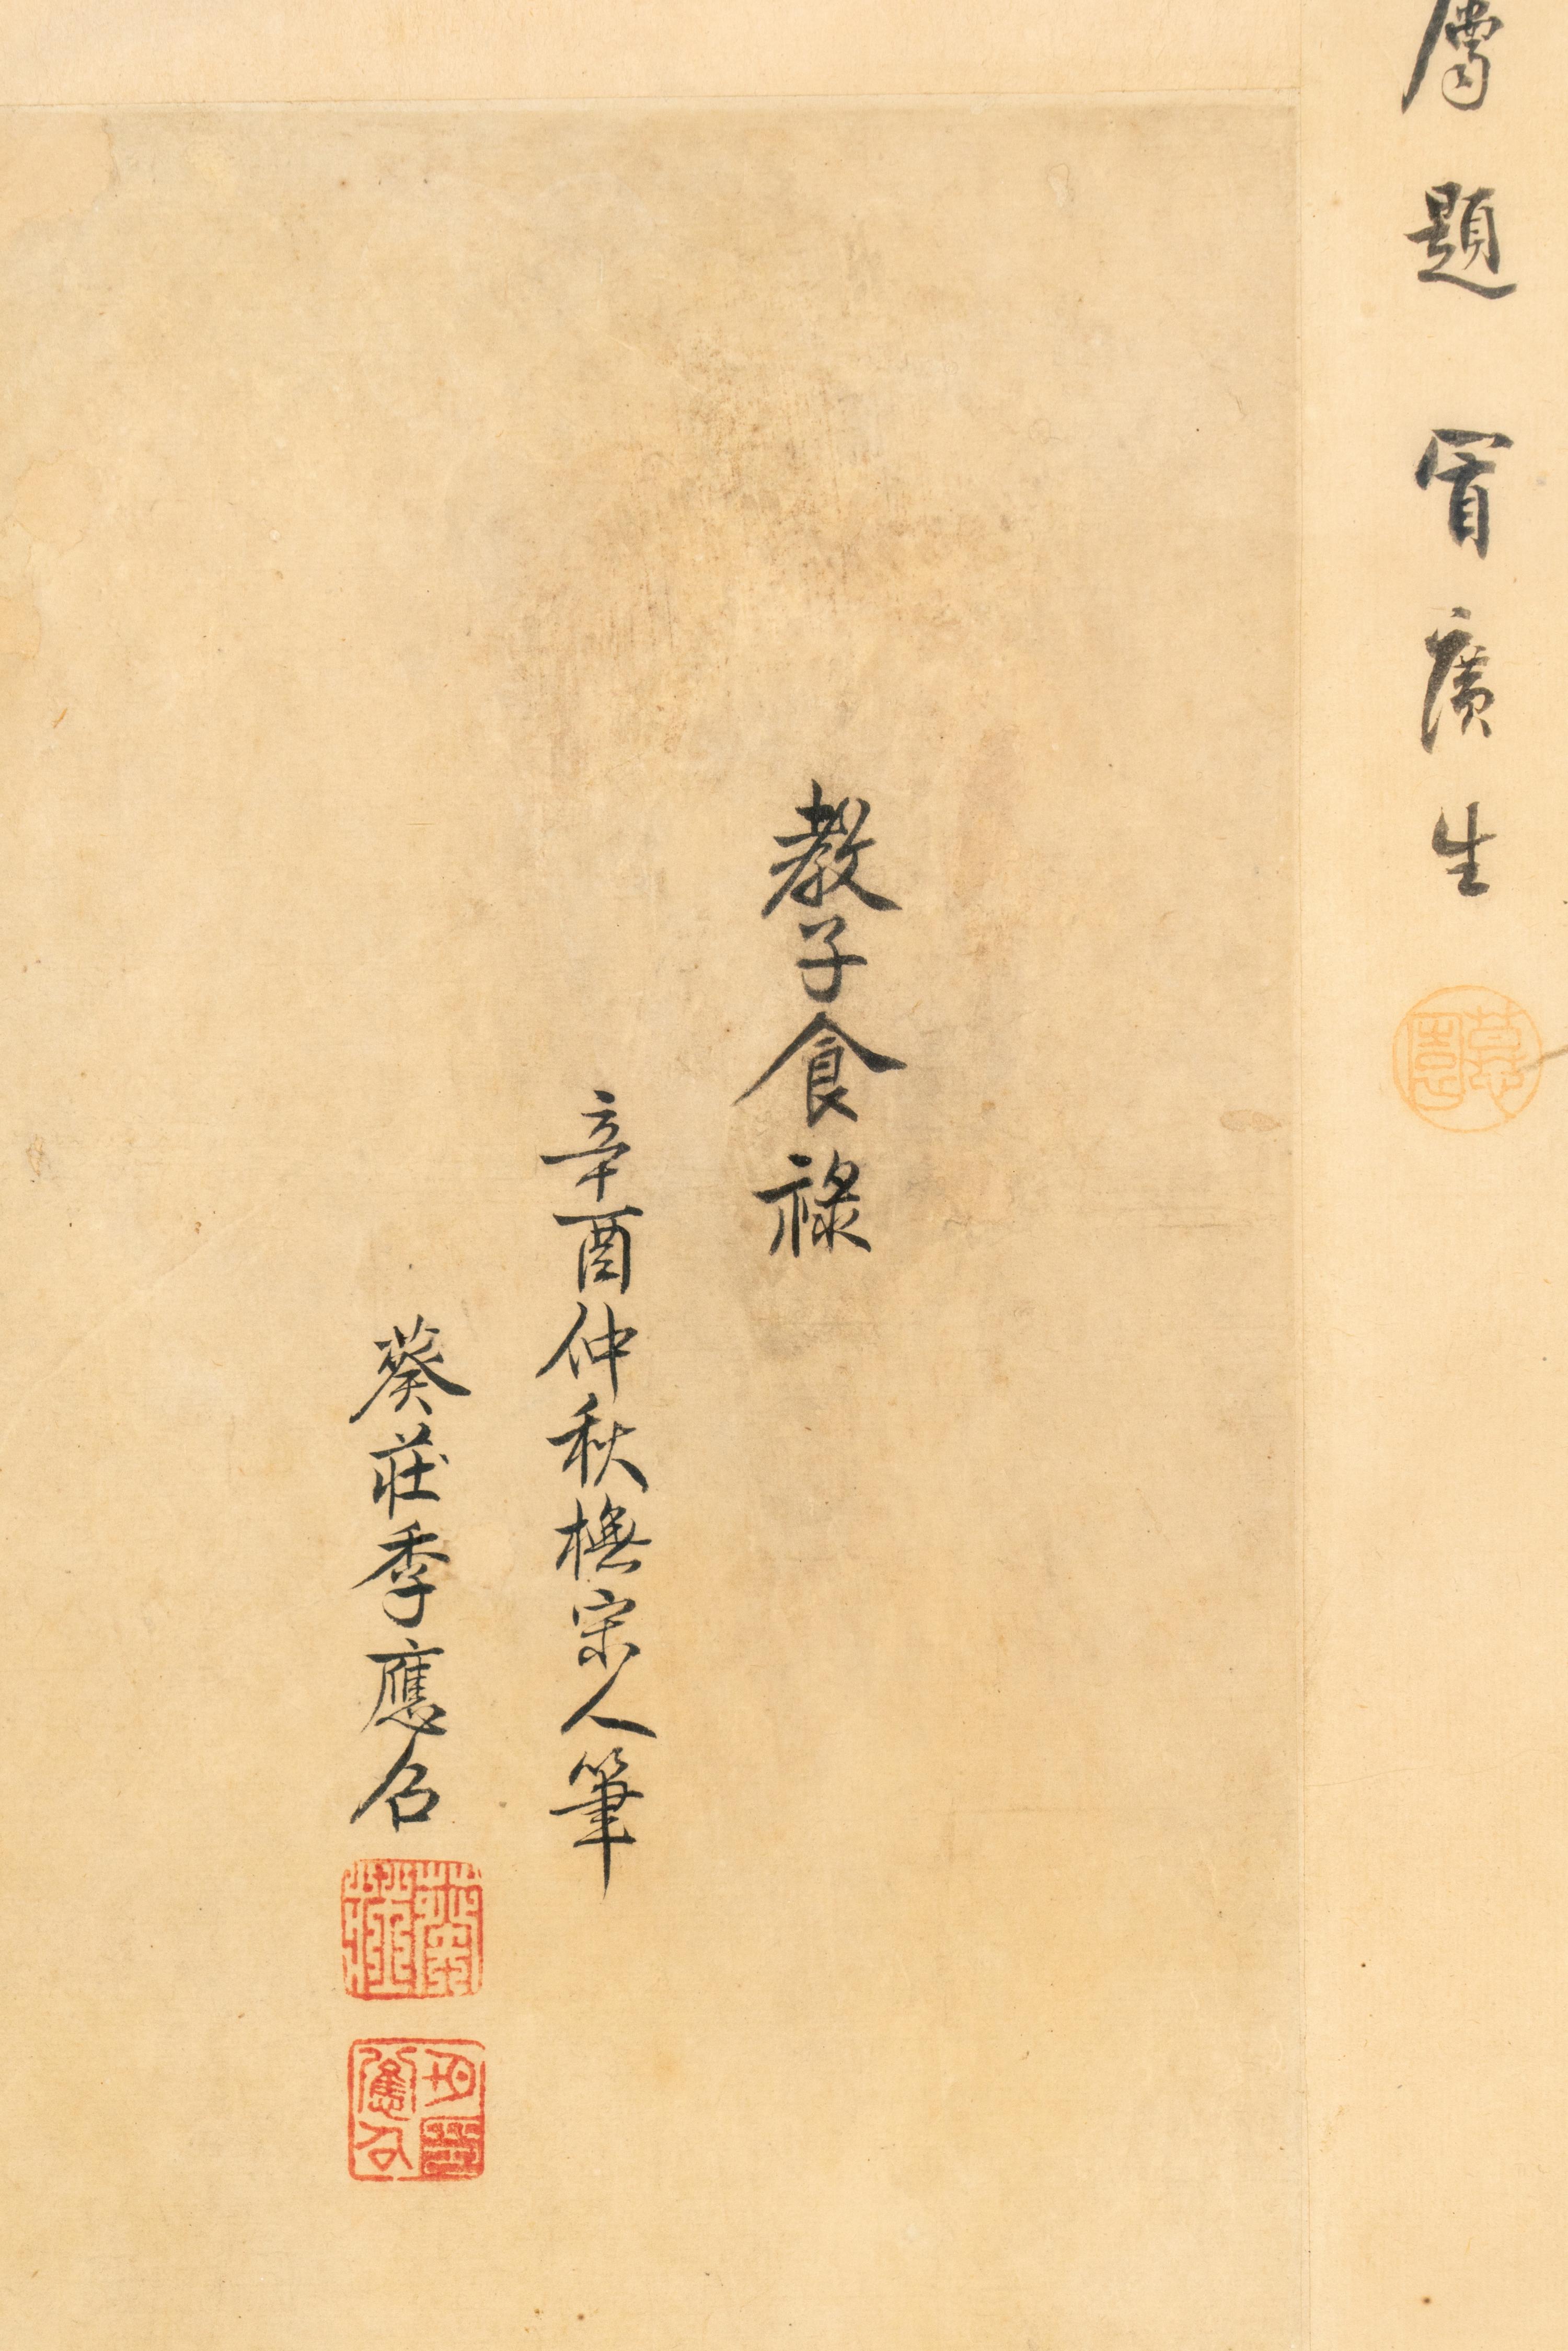 屬題 冒廣生
教子食祿
辛酉仲秋橅宋人筆
葵莊季應召